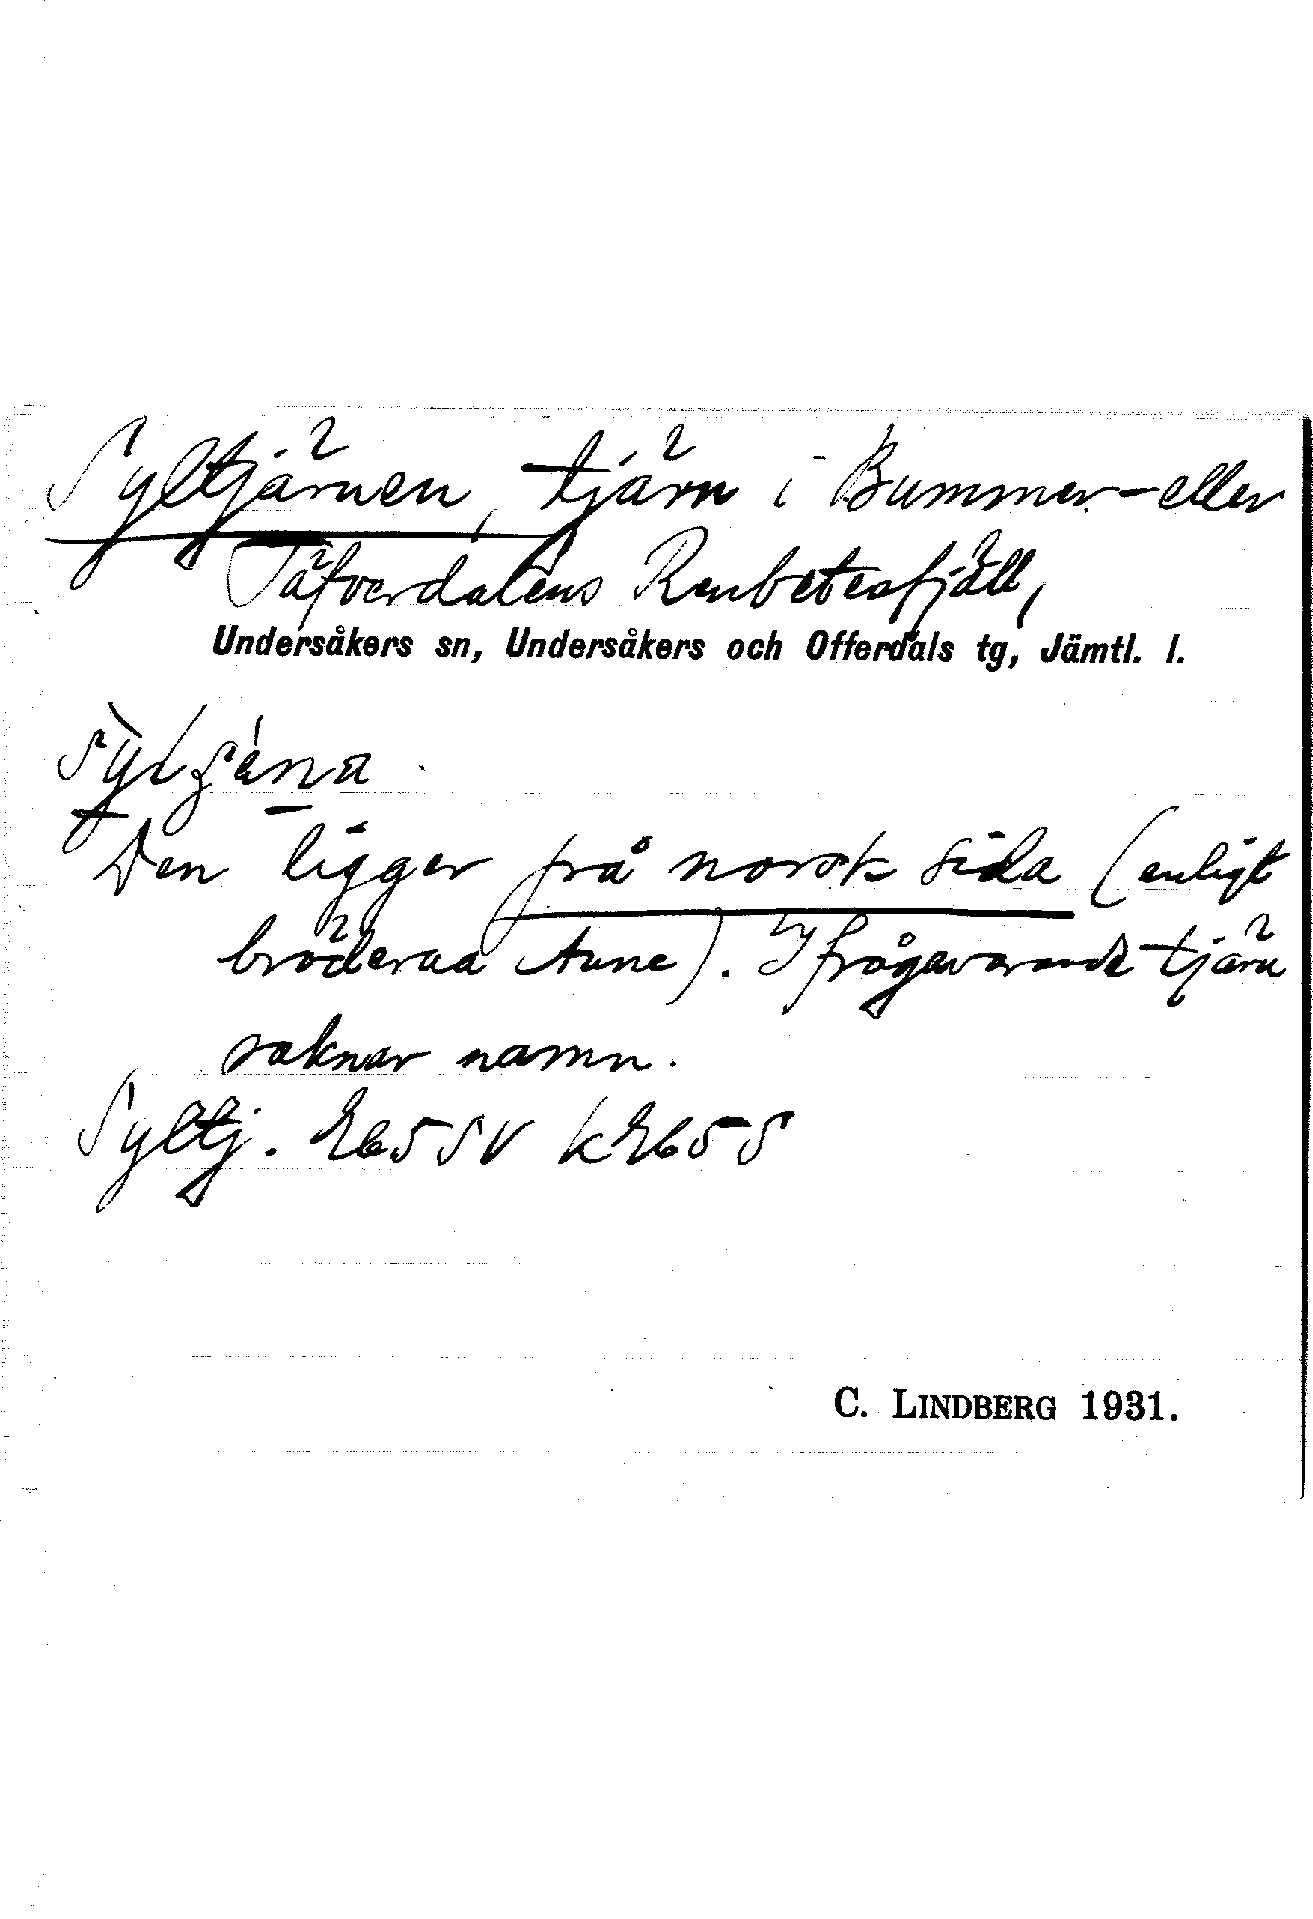 Syltjärnen, tjärn i Bummer- eller
Täfverdalens Renbetesfjäll,
Undersåkers sn, Undersåkers och Offerdals tg, Jämtl. l.
Den ligger på norsk sida (enligt
bröderna Aune). Ifrågavarande tjärn
saknar namn.
Syltj. SV S
C. LINDBERG 1931.